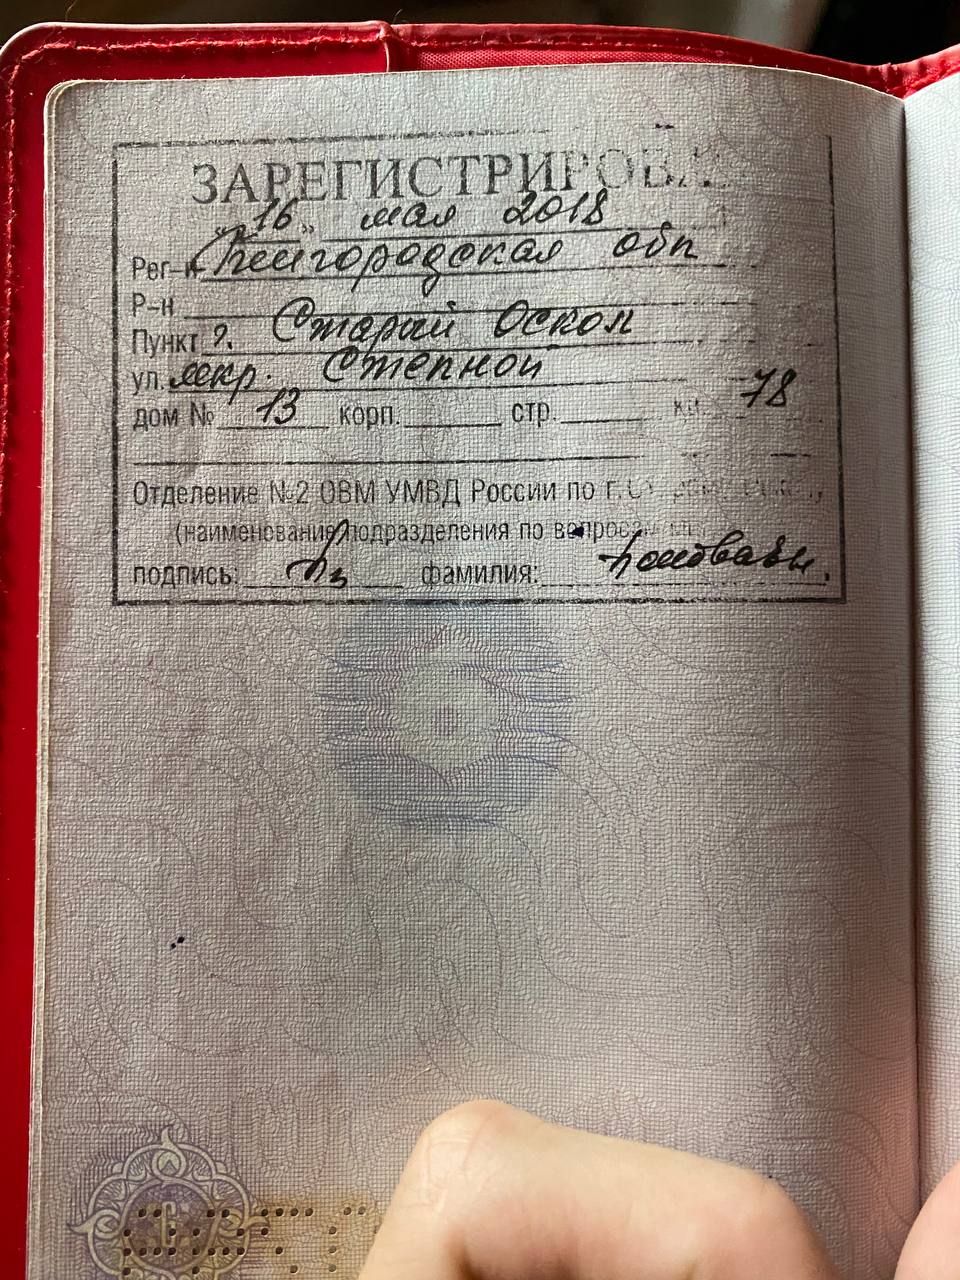 ЗАРЕГИСТРИРОВА
„16„ мая 2018
Рег-н Белгородская обл
Р-н
Пункт г. Старый Оскол
ул. мкр. Степной
дом № 13 корп. стр. кв 78
Отделение №2 ОВМ УМВД России по г.
(наименование подразделения по вопросам
подпись: фамилия: